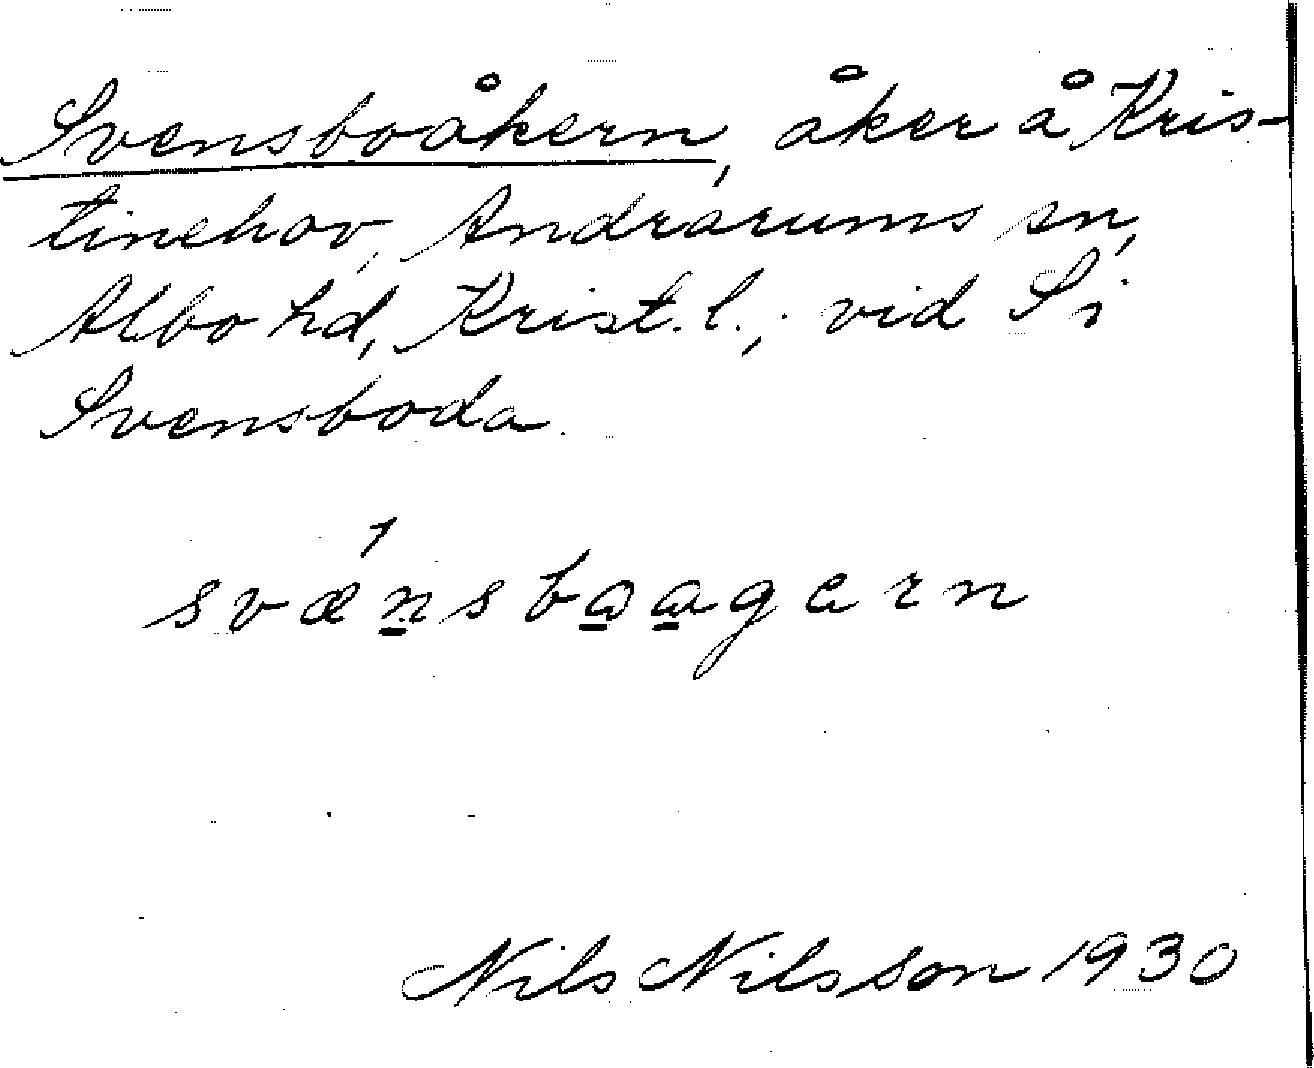 Svensboåkern, åker å Kris-
tinehov, Andrarums sn,
Albo hd, Krist. l., vid
Svensboda.
Nils Nilsson 1930